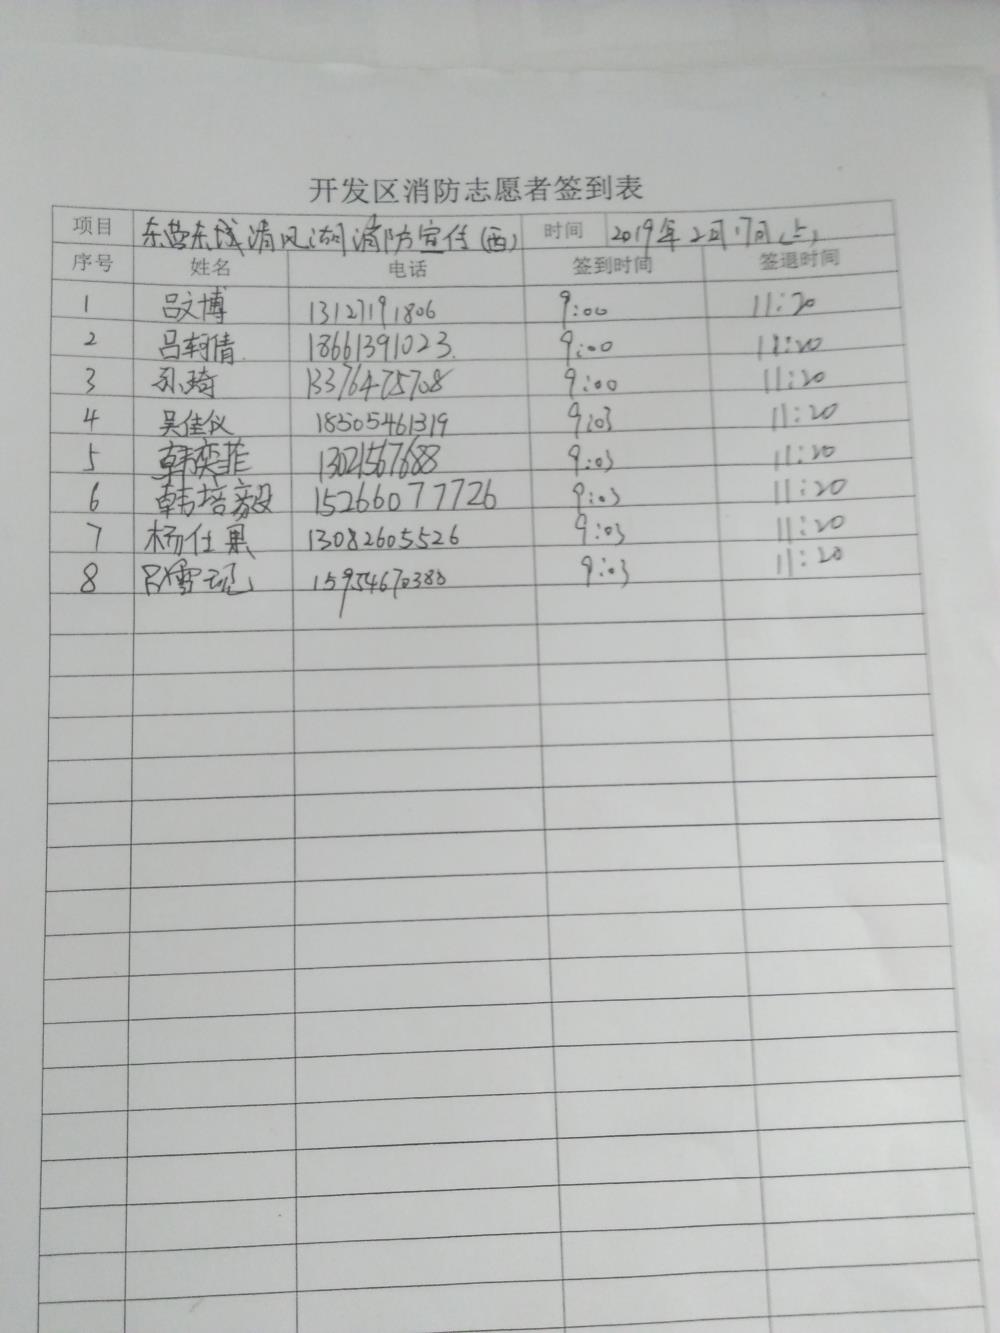 开发区消防志愿者签到表
项目 东营东城清风湖消防宣传(西) 时间 2019年2月17日(上)
序号 姓名 电话 签到时间 签退时间
1 吕文博 13127191806 9:00 11:20
2 吕轲倩 18661391023 9:00 11:20
3 孙琦 13376475708 9:00 11:20
4 吴佳仪 18505461319 9:03 11:20
5 韩奕菲 13021567688 9:03 11:20
6 韩培毅 15266077726 9:03 11:20
7 杨仕果 13082605526 9:03 11:20
8 9:03 11:20